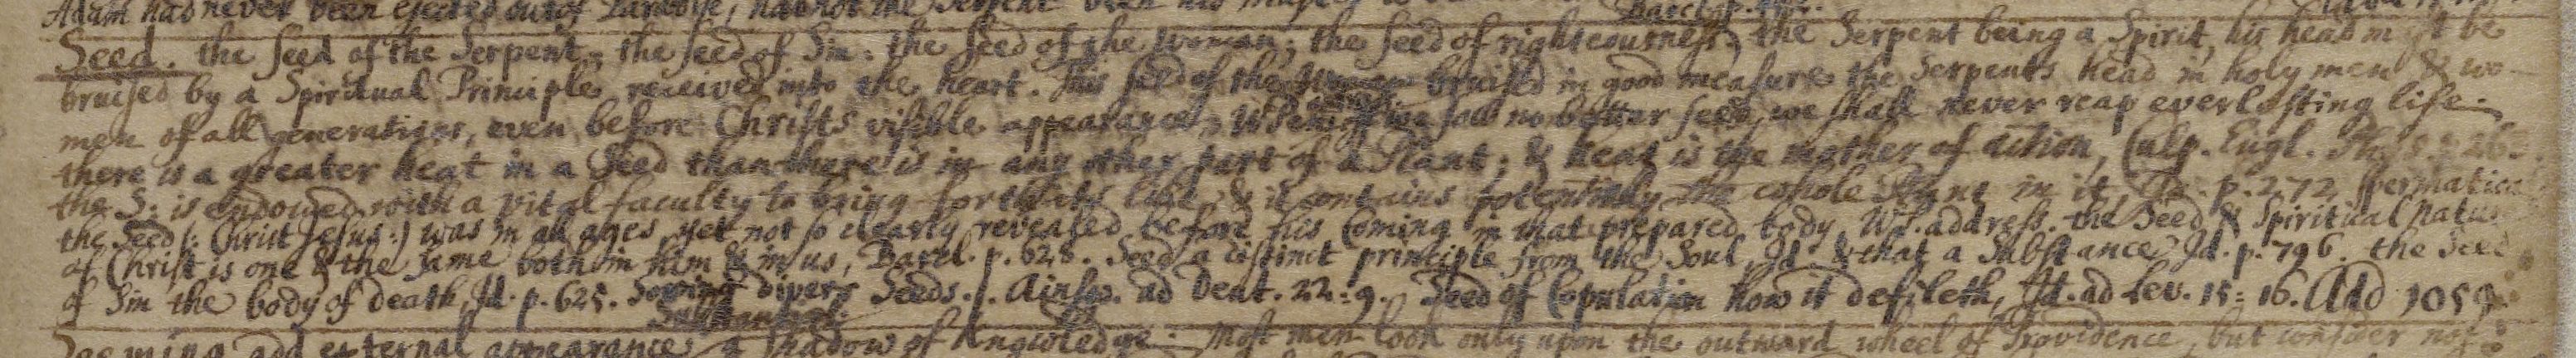 Adam had never been ejected out of Paradise, had not the Serpent been his
Barcl. p.
Seed. the seed of the Serpent, the seed of Sin: the seed of the woman, the seed of righteousness. the Serpent being a Spirit, his head must be
bruised by a Spiritual Principle received into the heart. This seed of the woman bruised in good measure the Serpents head in holy men & wo-
men of all generations, even before Christs visible appearance, we sow no better seed, we shall never reap everlasting life.
there is a greater heat in a Seed than there is in any other part of a Plant; & heat is the mother of action, Culp. Engl.
the S: is endowed with a vital faculty to bring forth its like & it contains potentially the whole Plant in it Id. p. 272 Spermatical
the Seed (: Christ Jesus:) was in all ages yet not so clearly revealed before his Coming in that prepared body, W.P. address. the Seed & Spiritical Nature
of Christ is one & the same both in him & in us, Barcl. p. 628. Seed a distinct principle from the Soul, Id. & that a Substance Id. p. 796. the Seed
of Sin the body of death, Id. p. 625. Sowing divers Seeds. Ainsw. ad Deut. 22:9. Seed of Copulation how it defileth, Id. ad Lev. 15:16. Add 1059
Substantial.
Seeming add external appearance, a shadow of Knowledge: Most men look only upon the outward wheel of Providence, but consider not